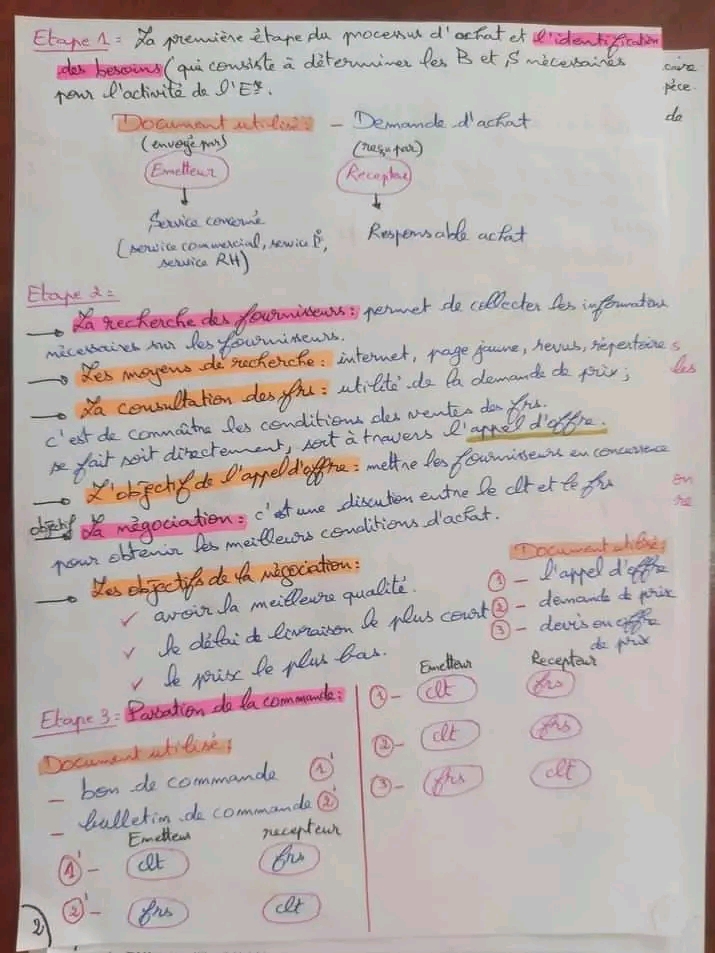 Etape 1 = La première étape du processus d'achat et l'identification
des besoins (qui consiste à déterminer les B et S nécessaires
pour l'activité de l'E^se.
Document utilisé: - Demande d'achat
(envoyé par) (reçu par)
Emetteur Recepteur
Service concerné Responsable achat
(service commercial, service P°,
service RH)
Etape 2 =
→ La recherche des fournisseurs: permet de collecter les informations
nécessaires sur les fournisseurs.
→ Les moyens de recherche: internet, page jaune, revus, répertoires
→ La consultation des frs: utilité de la demande de prix;
c'est de connaître les conditions des ventes des frs.
se fait soit directement, soit à travers l'appel d'offre.
→ L'objectif de l'appel d'offre: mettre les fournisseurs en concurrence
objectif La négociation: c'est une discution entre le clt et le frs
pour obtenir les meilleurs conditions d'achat.
→ Les objectifs de la négociation:
✓ avoir la meilleure qualité.
✓ le délai de livraison le plus court
✓ le prix le plus bas.
Document utilisé:
① - l'appel d'offre
② - demande de prix
③ - devis ou offre
de prix
Emetteur Recepteur
① - clt frs
② - clt frs
③ - frs clt
Etape 3 = Passation de la commande:
Document utilisé:
- bon de commande ①'
- bulletin de commande ②'
Emetteur recepteur
①' - clt frs
②' - frs clt
2
caire
pèce.
de
les
en
re